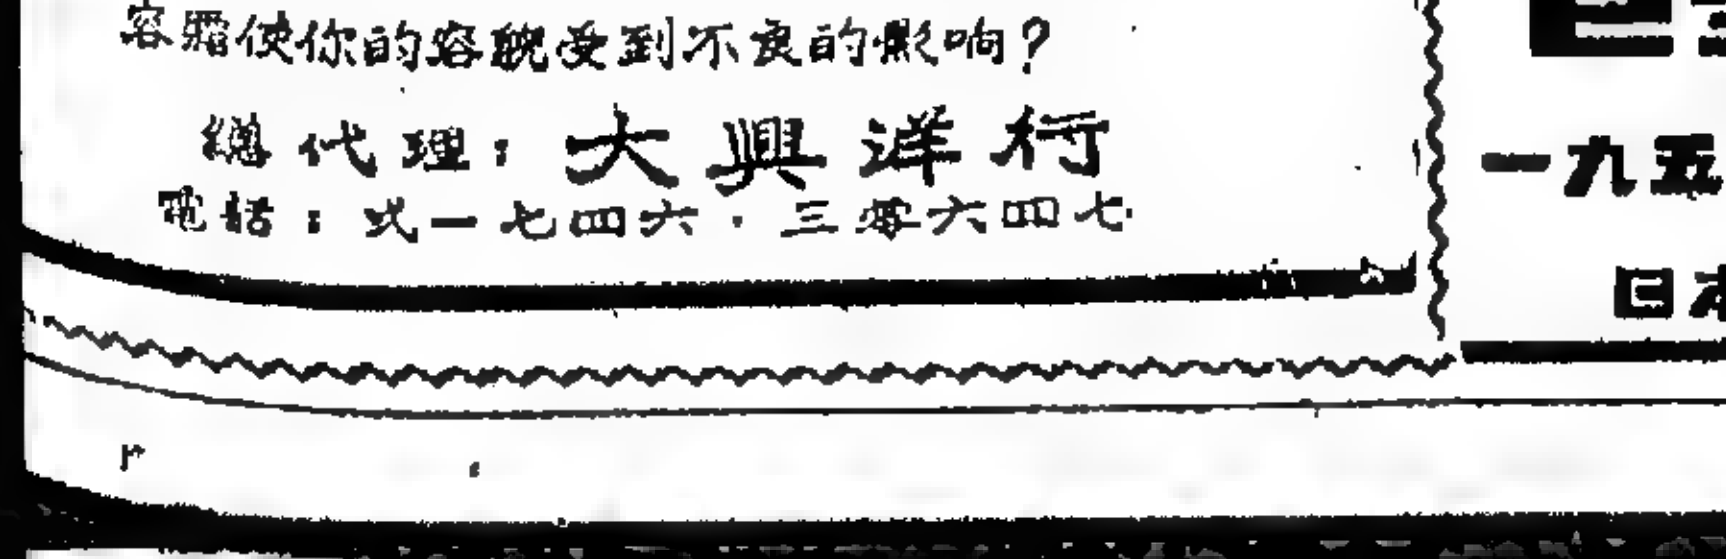 容霜使你的容貌受到不良的影响？
總代理：大興洋行
電話：弍一七四六·三零六四七
一九五
日本